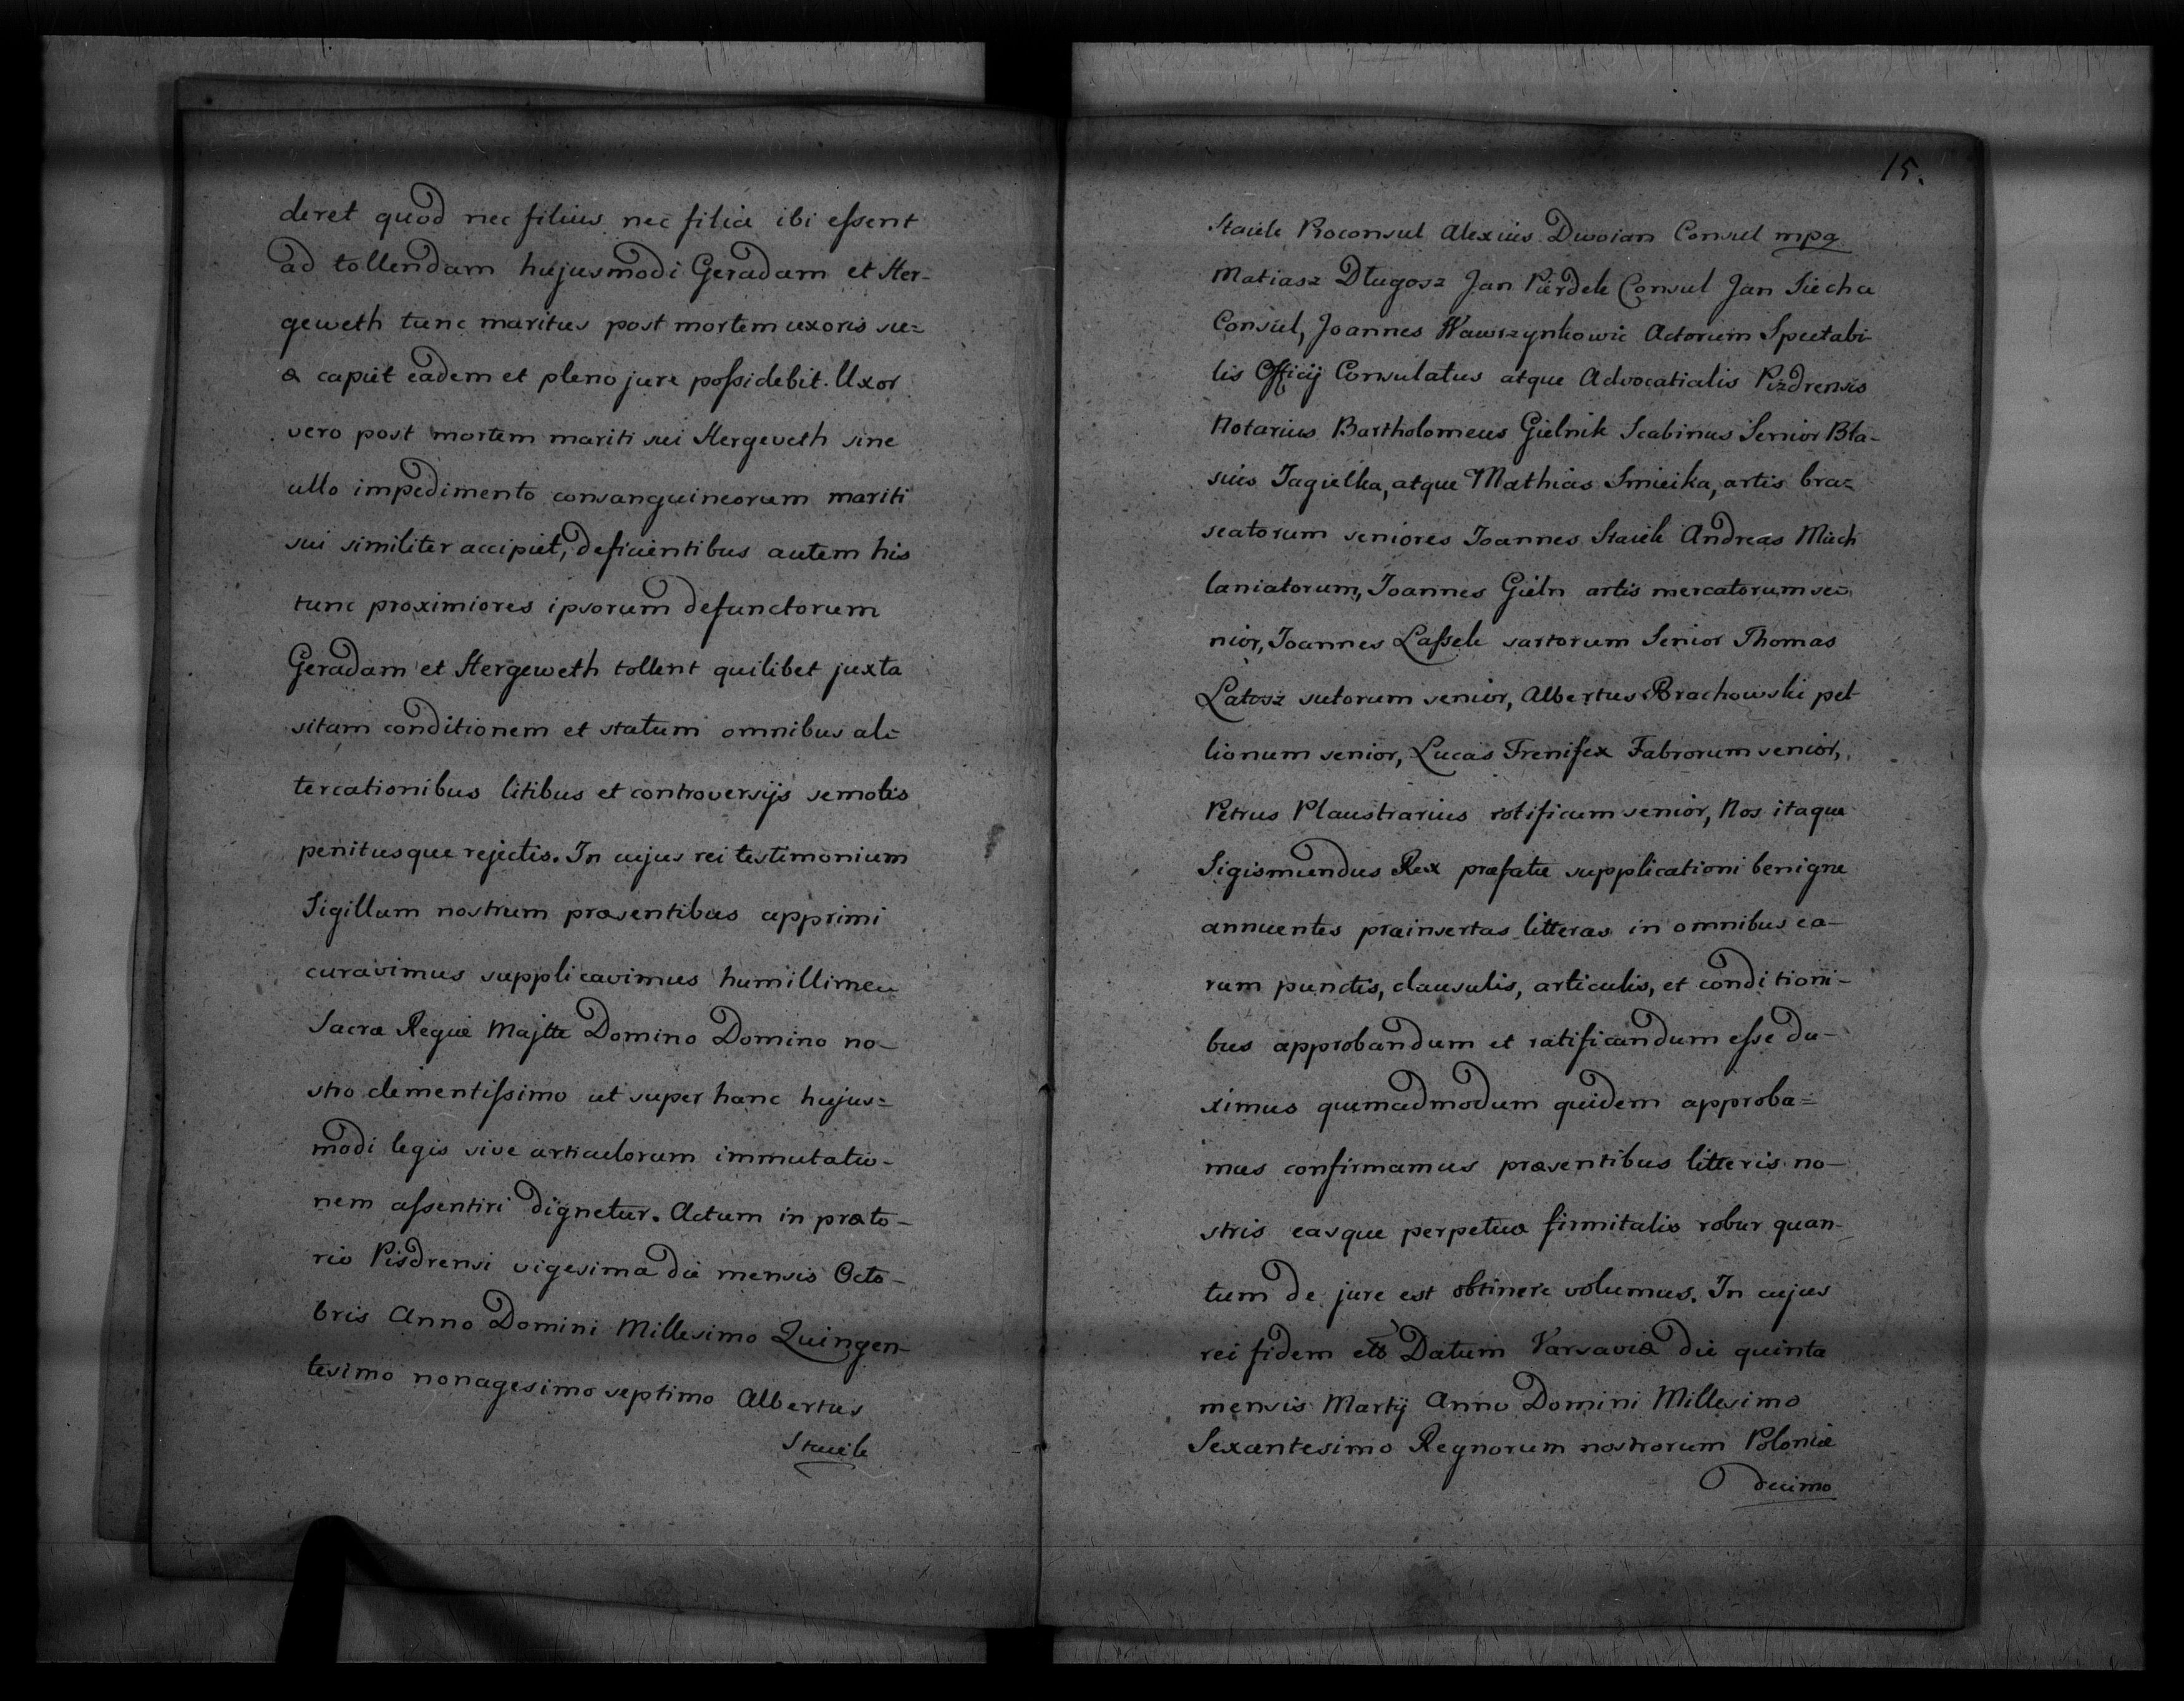 deret quod nec filius nec filia ibi essent
ad tollendam hujusmodi Geradam et Her-
geweth tunc maritus post mortem uxoris su=
æ capiet eadem et pleno jure possidebit. Uxor
vero post mortem mariti sui Hergeveth sine
ullo impedimento consanguineorum mariti
sui similiter accipiet, deficientibus autem his
tunc proximiores ipsorum defunctorum
Geradam et Hergeweth tollent quilibet juxta
sitam conditionem et statum omnibus al=
tercationibus litibus et controversijs semotis
penitusque rejectis. In cujus rei testimonium
Sigillum nostrum præsentibus apprimi
curavimus supplicavimus humillime
Sacræ Regiæ Majtte Domino Domino no-
stro clementissimo ut super hanc hujus=
modi legis sive articulorum immutatio-
nem assentiri dignetur. Actum in præto-
rio Pisdrensi vigesima die mensis Octo-
bris Anno Domini Millesimo Quingen-
tesimo nonagesimo septimo Albertus
Staiek
15.
Staiek Proconsul Alexius Dwoian Consul mpa
Matiasz Długosz Jan Pierdek Consul Jan Siecha
Consul, Joannes Wawrzynkowic Actorum Spectabi-
lis Officij Consulatus atque Advocatialis Pizdrensis
Notarius Bartholomeus Gielnik Scabinus Senior Bla-
sius Jagielka, atque Mathias Smieika, artis bra=
seatorum seniores Joannes Staiek Andreas Miech
laniatorum, Joannes Gieln artis mercatorum se=
nior, Joannes Lassek sartorum Senior Thomas
Latosz sutorum senior, Albertus Brachowski pel
lionum senior, Lucas Frenifex Fabrorum senior,
Petrus Plaustrarius rotificum senior, Nos itaque
Sigismundus Rex præfatæ supplicationi benigne
annuentes præinsertas litteras in omnibus ea-
rum punctis, clausulis, articulis, et conditioni-
bus approbandum et ratificandum esse du-
ximus quemadmodum quidem approba=
mus confirmamus præsentibus litteris no-
stris easque perpetuæ firmitatis robur quan-
tum de jure est obtinere volumus. In cujus
rei fidem etc Datum Varsaviæ die quinta
mensis Martij Anno Domini Millesimo
Sexcentesimo Regnorum nostrorum Poloniæ
decimo